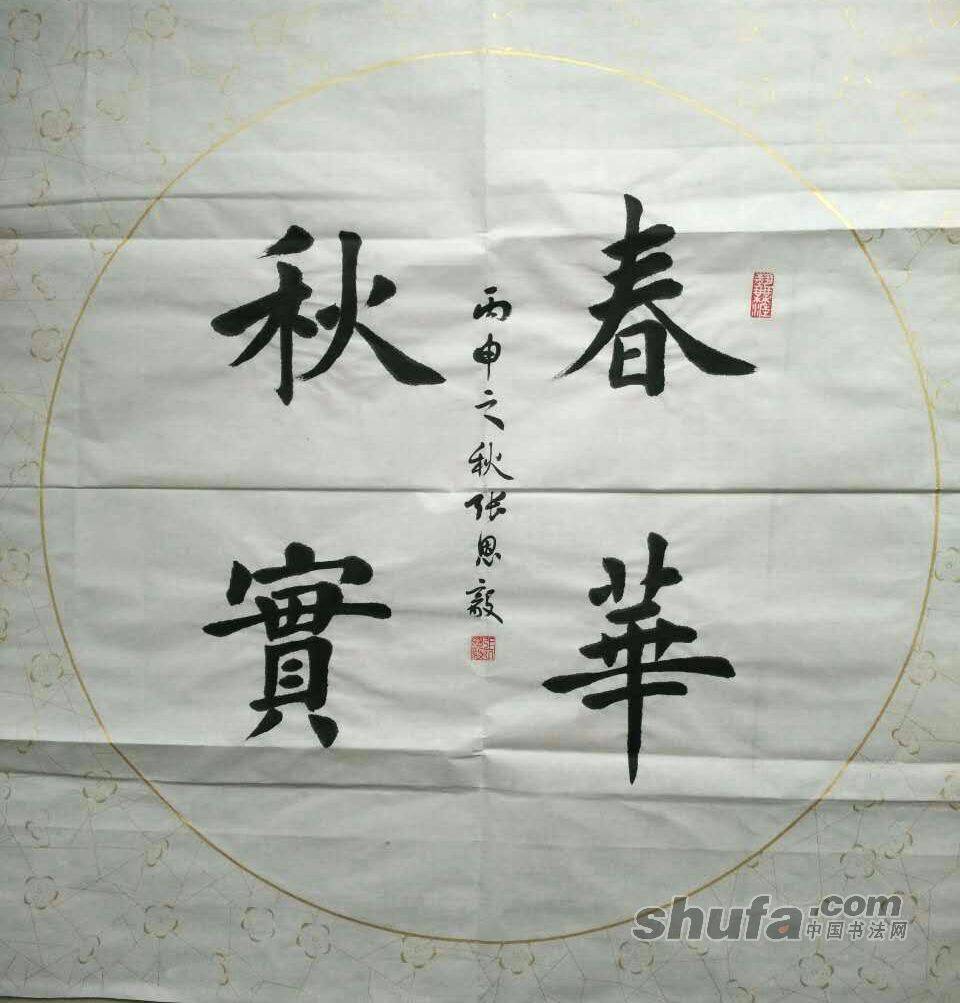 春華
秋實
丙申之秋张恩毅
shufa.com
中国书法网